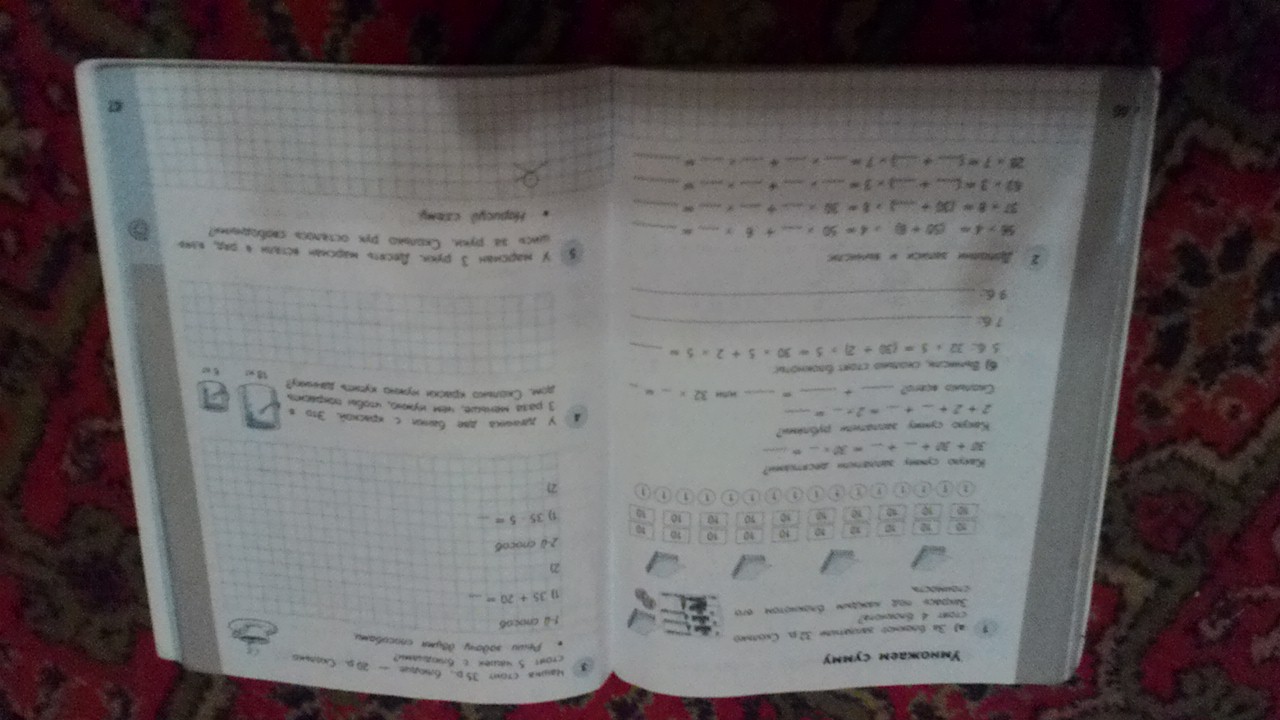 Умножаем сумму
1 а) За блокнот заплатили 32 р. Сколько
стоят 4 блокнота?
Закрась под каждым блокнотом его
стоимость.
10 10 10 10 10 10 10 10 10 10
10 10 10 10 10 10 10 10 10 10
1 1 1 1 1 1 1 1 1 1 1 1 1 1 1 1
Какую сумму заплатили десятками?
30 + 30 + __ + __ = 30 × __ = ____
Какую сумму заплатили рублями?
2 + 2 + __ + __ = 2 × __ = ____
Сколько всего? ____ + ____ = ____ или 32 × __ = __
б) Вычисли, сколько стоят блокноты:
5 б.: 32 × 5 = (30 + 2) × 5 = 30 × 5 + 2 × 5 = ____
7 б.:
9 б.:
2 Дополни записи и вычисли:
56 × 4 = (50 + 6) × 4 = 50 × ___ + 6 × ___ = ____
37 × 8 = (30 + ___) × 8 = 30 × ___ + ___ × ___ = ____
63 × 3 = (___ + ___) × 3 = ___ × ___ + ___ × ___ = ____
28 × 7 = (___ + ___) × 7 = ___ × ___ + ___ × ___ = ____
66
3 Чашка стоит 35 р., блюдце — 20 р. Сколько
стоят 5 чашек с блюдцами?
• Реши задачу двумя способами.
1-й способ
1) 35 + 20 = __
2)
2-й способ
1) 35 · 5 = __
2)
4 У дачника две банки с краской. Это в
3 раза меньше, чем нужно, чтобы покрасить
дом. Сколько краски нужно купить дачнику?
18 кг 6 кг
5 У марсиан 3 руки. Десять марсиан встали в ряд, взяв-
шись за руки. Сколько рук осталось свободными?
• Нарисуй схему.
67